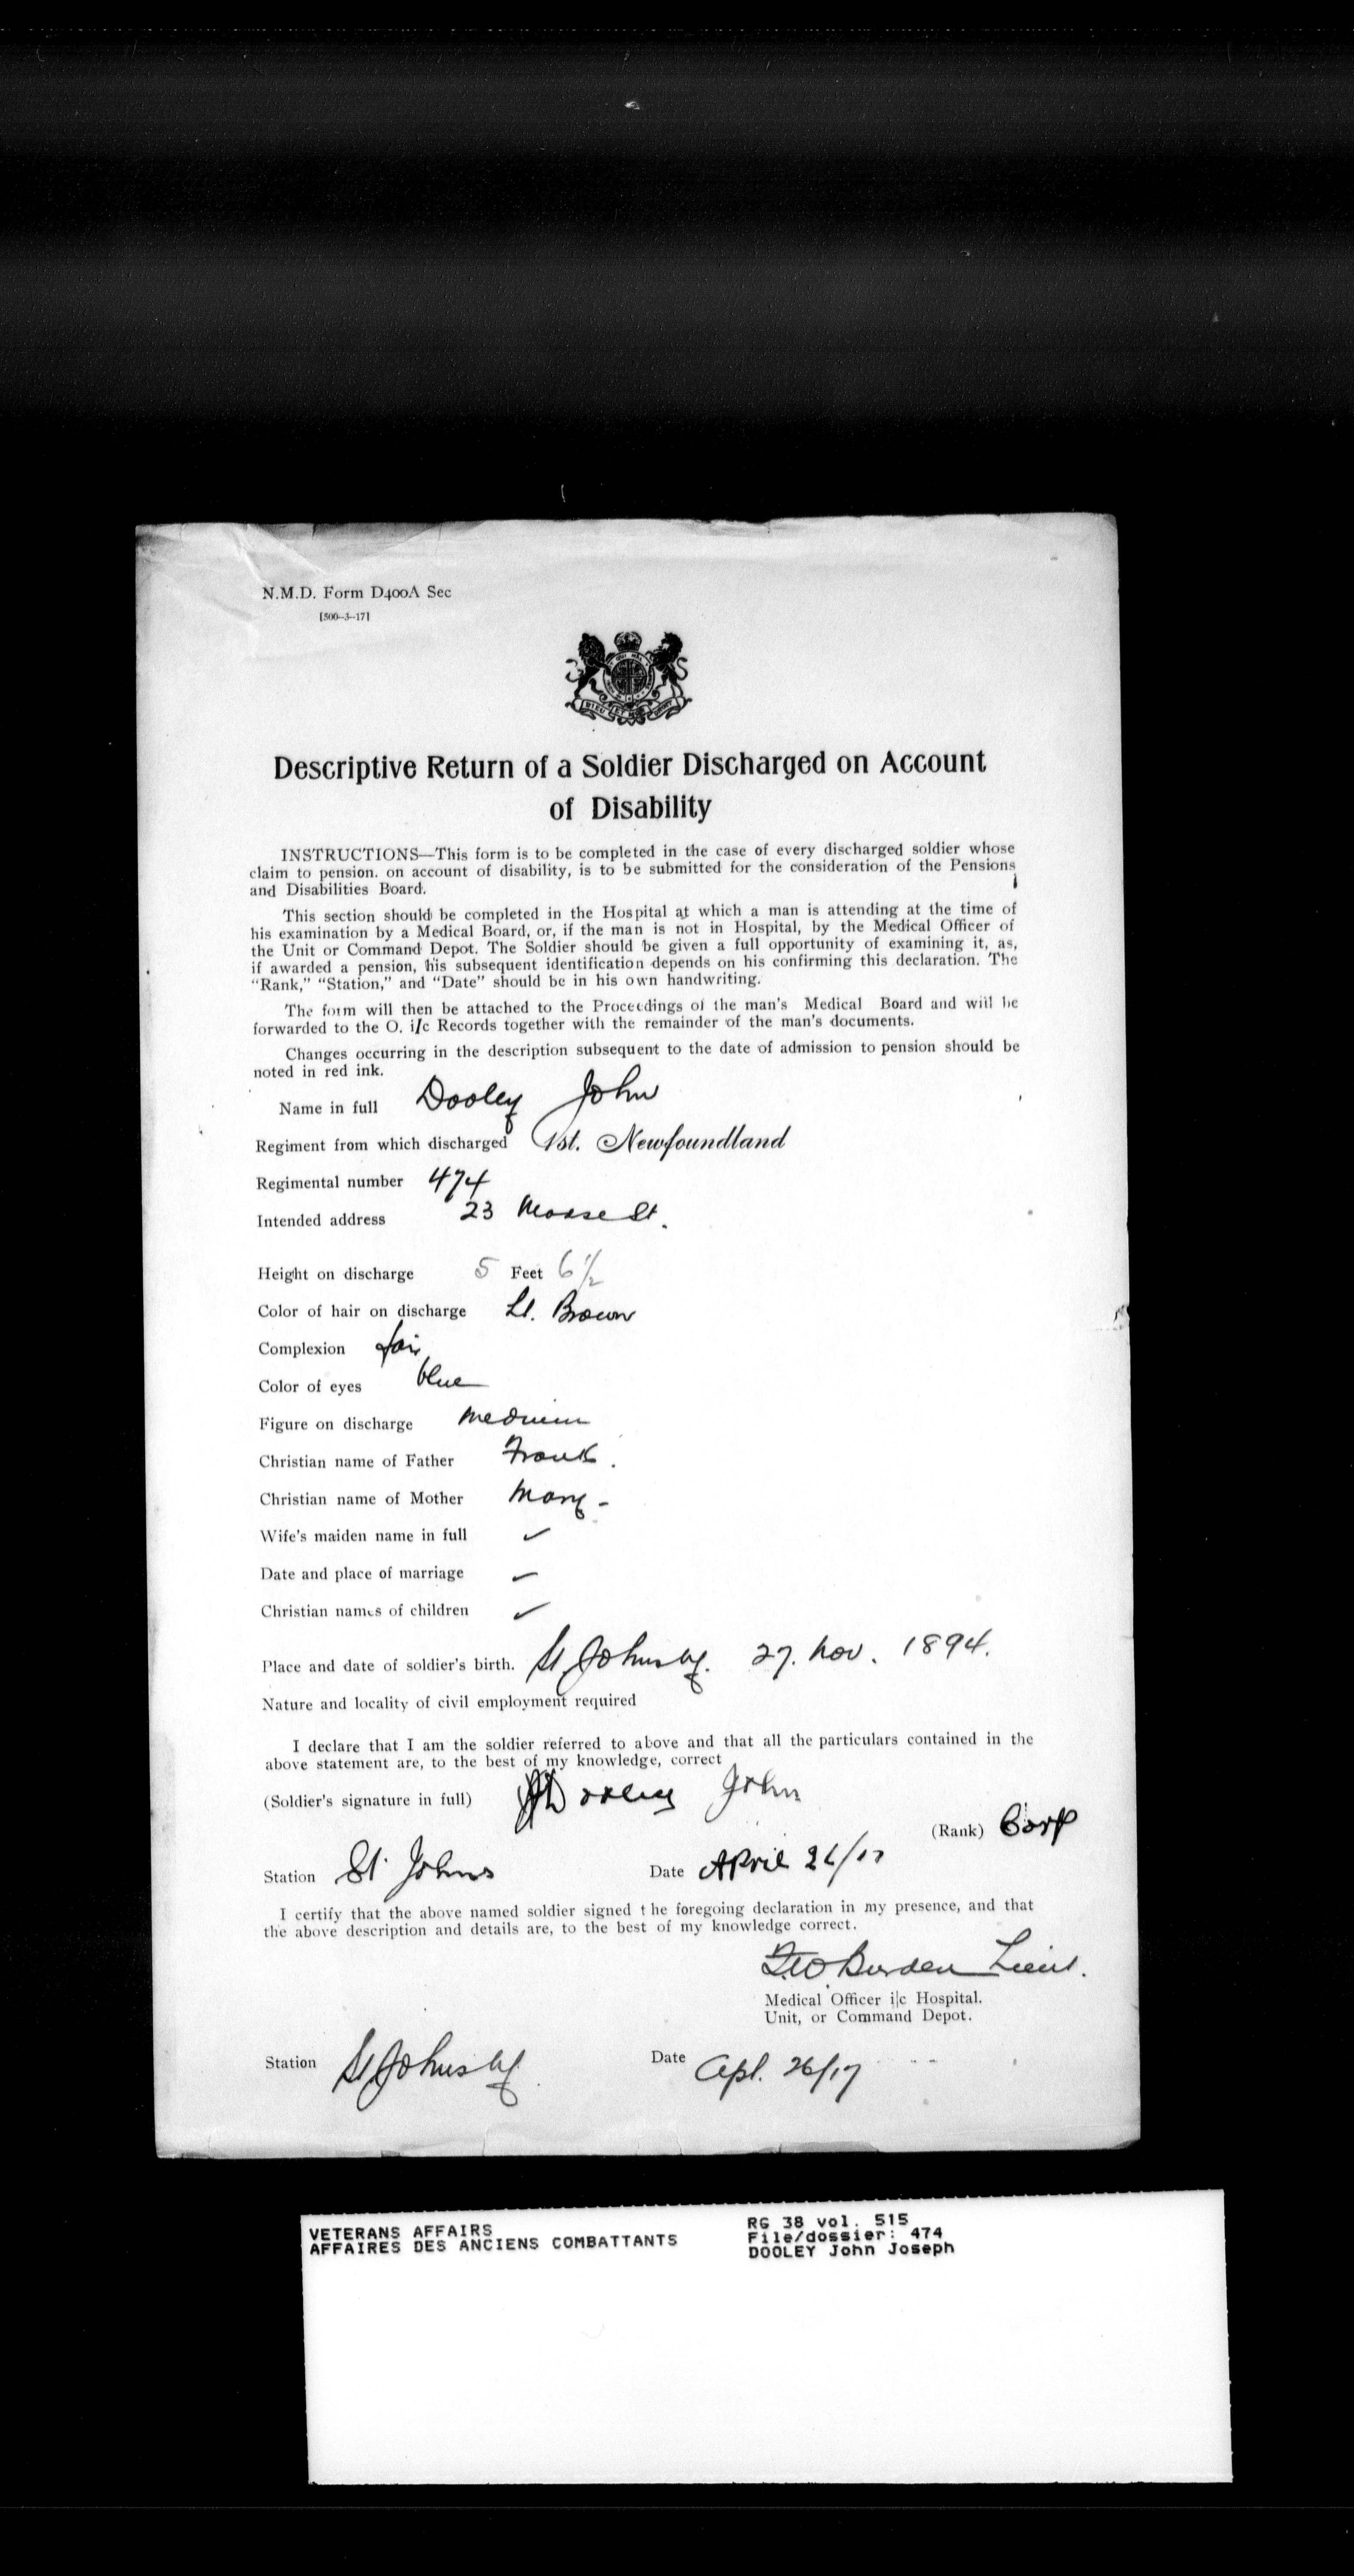 N.M.D. Form D400A Sec
[500--3--17]
DIEU ET MON DROIT
Descriptive Return of a Soldier Discharged on Account
of Disability
INSTRUCTIONS—This form is to be completed in the case of every discharged soldier whose
claim to pension. on account of disability, is to be submitted for the consideration of the Pensions
and Disabilities Board.
This section should be completed in the Hospital at which a man is attending at the time of
his examination by a Medical Board, or, if the man is not in Hospital, by the Medical Officer of
the Unit or Command Depot. The Soldier should be given a full opportunity of examining it, as,
if awarded a pension, his subsequent identification depends on his confirming this declaration. The
“Rank,” “Station,” and “Date” should be in his own handwriting.
The form will then be attached to the Proceedings of the man's Medical Board and will be
forwarded to the O. i/c Records together with the remainder of the man's documents.
Changes occurring in the description subsequent to the date of admission to pension should be
noted in red ink.
Name in full Dooley John
Regiment from which discharged 1st. Newfoundland
Regimental number 474
Intended address 23 St.
Height on discharge 5 Feet 6 1/2
Color of hair on discharge Lt. Brown
Complexion fair
Color of eyes blue
Figure on discharge medium
Christian name of Father Frank.
Christian name of Mother Mary -
Wife's maiden name in full ✓
Date and place of marriage ✓
Christian names of children ✓
Place and date of soldier's birth. St. Johns 27. Nov. 1894.
Nature and locality of civil employment required
I declare that I am the soldier referred to above and that all the particulars contained in the
above statement are, to the best of my knowledge, correct
(Soldier's signature in full) Dooley John
(Rank) Corp
Station St. Johns Date April 26/17
I certify that the above named soldier signed t he foregoing declaration in my presence, and that
the above description and details are, to the best of my knowledge correct.
Burden Lieut.
Medical Officer i|c Hospital.
Unit, or Command Depot.
Station St Johns Date Apl. 26/17
VETERANS AFFAIRS
AFFAIRES DES ANCIENS COMBATTANTS
RG 38 vol. 515
File/dossier: 474
DOOLEY John Joseph